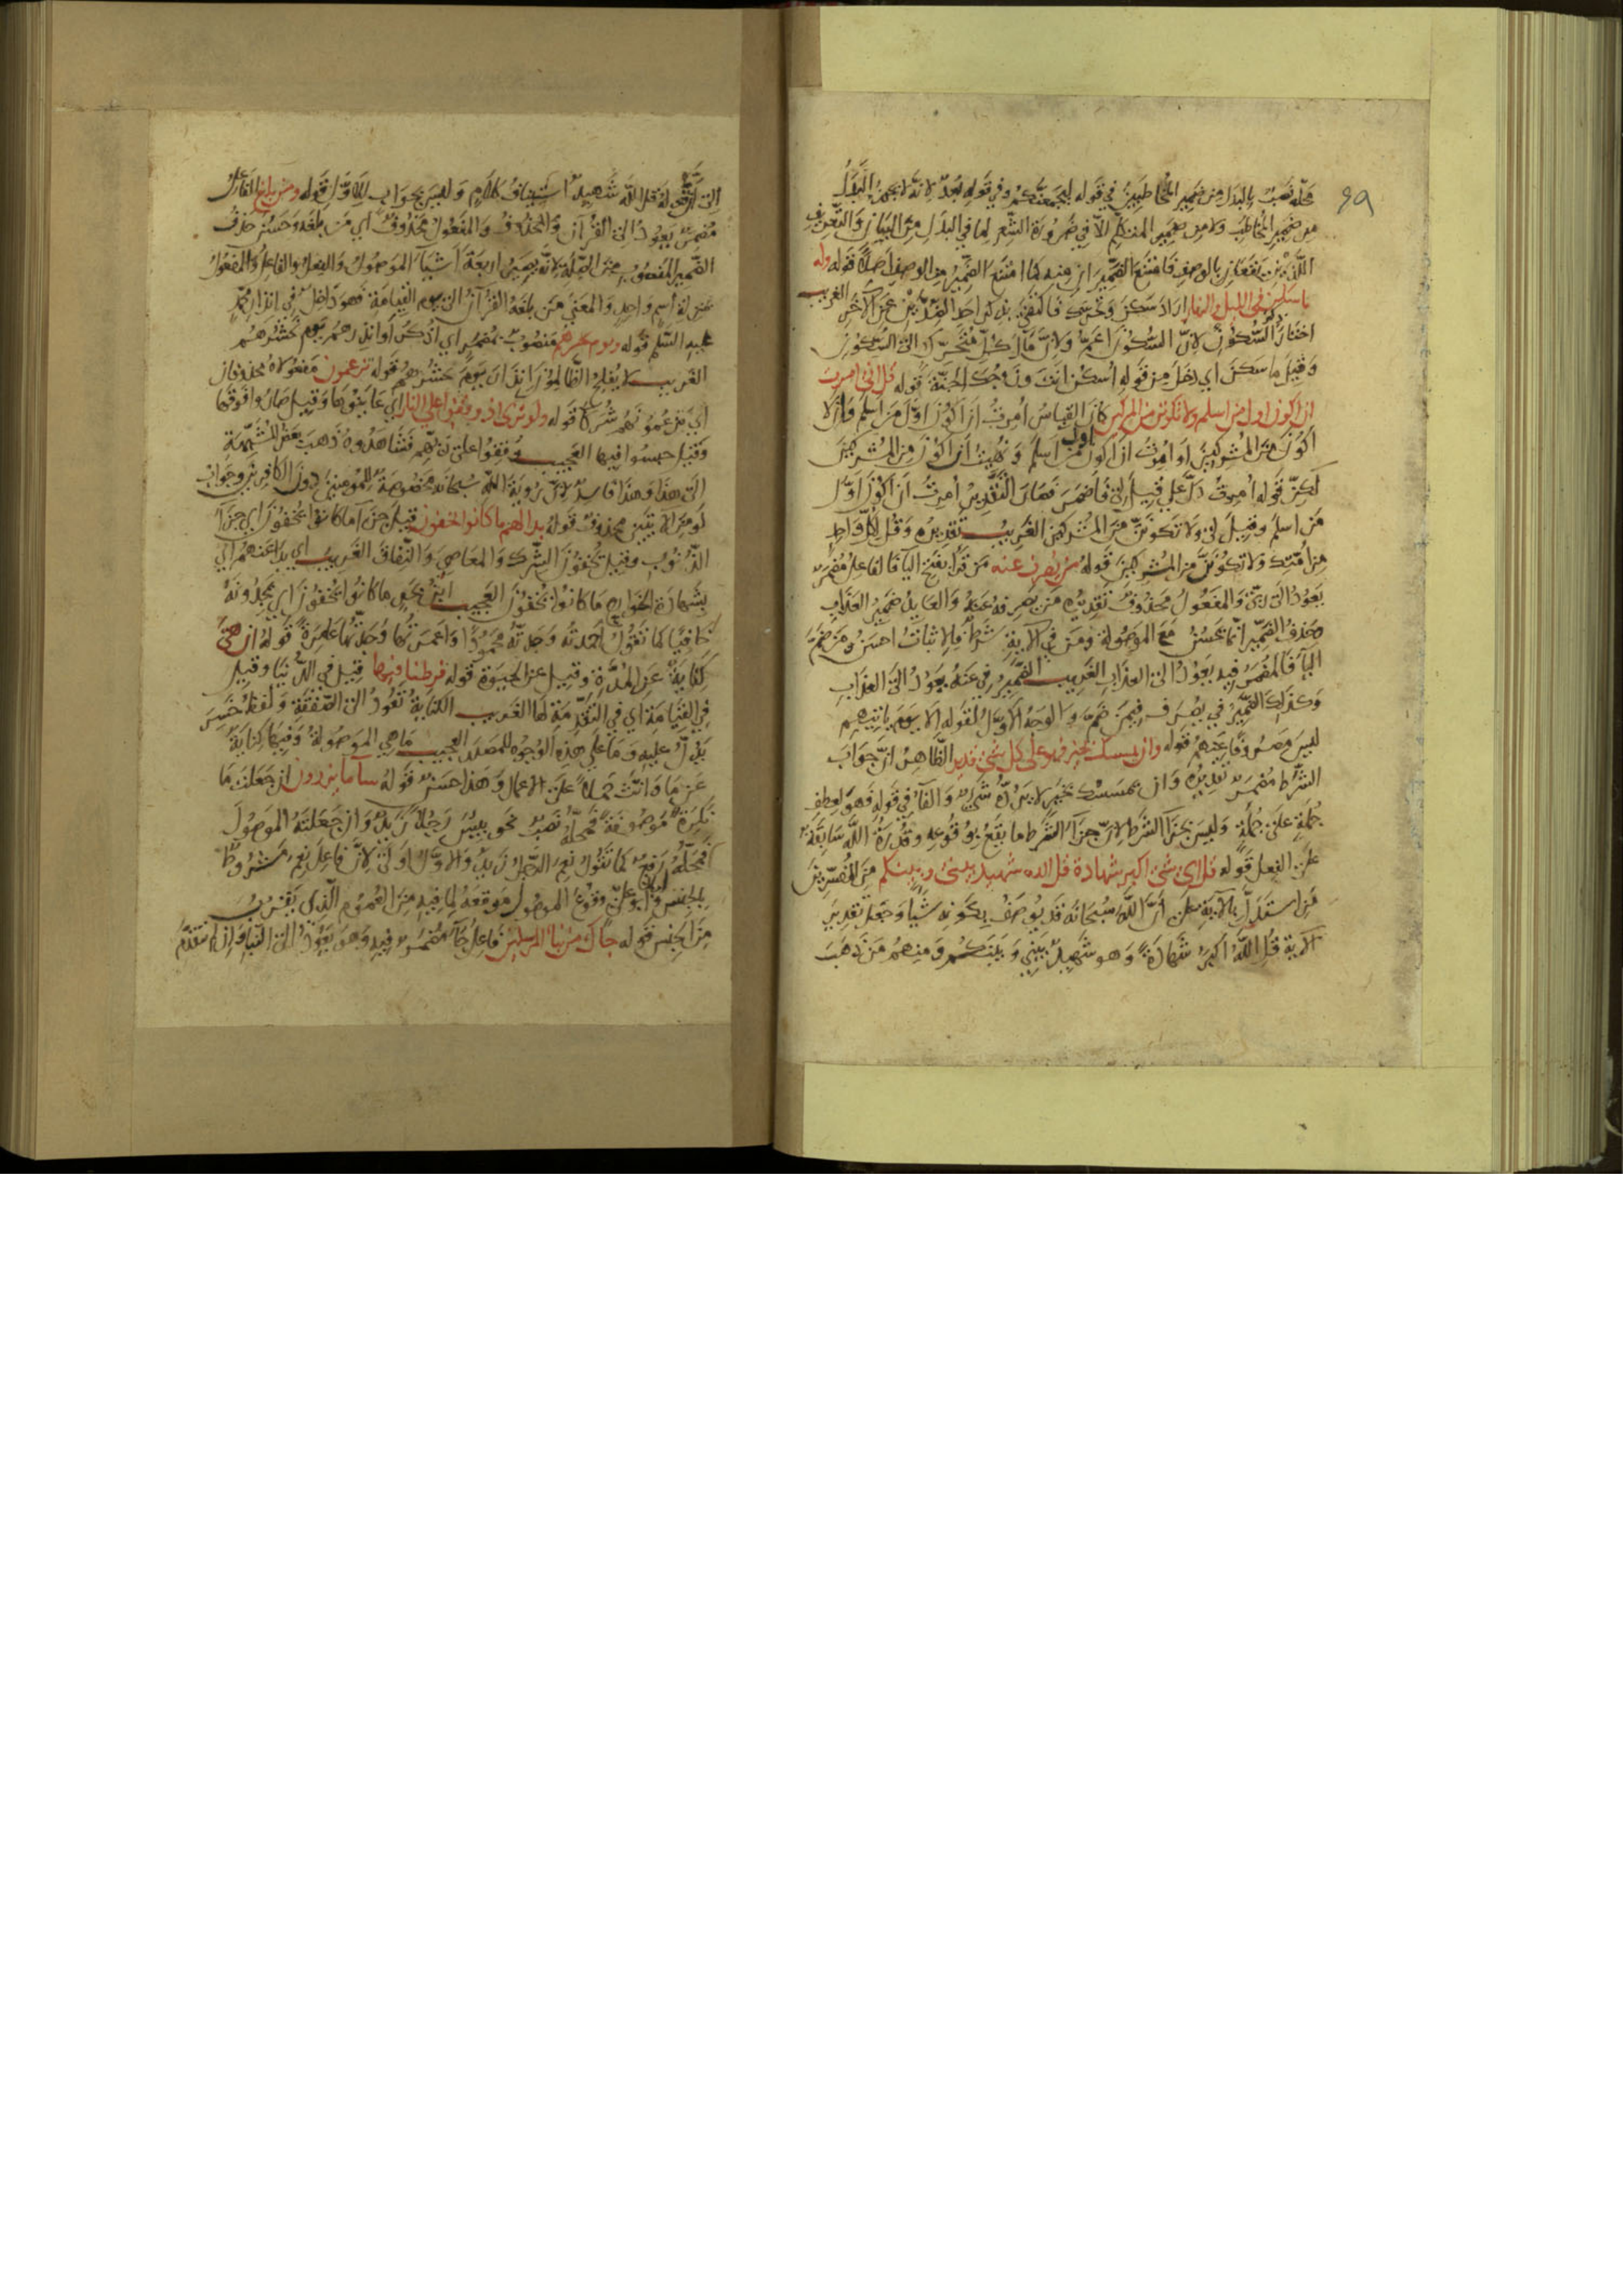 ٨٩
محله نصب بالبدل من ضمير المخاطبين في قوله ليجمعنكم وفي قوله بعد لانه لا يجوز البدل
من ضمير المخاطب ولا من ضمير المتكلم الا في ضرورة الشعر لما في البدل من البيان والتعريف
اللذين يقعان بالوصف فامتنع الضمير ان منه كما امتنع الضمير من الوصف اصلا قوله وله
ما سكن في الليل والنهار اراد سكن وتحرك فاكتفى بذكر احد الضدين عن الآخر الغريب
اختار ذكر السكون لان السكون اعم ولان مآل كل متحرك الى السكون
وقيل ما سكن اي دخل من قوله اسكن انت وزوجك الجنة قوله قل اني امرت
ان اكون اول من اسلم ولا تكونن من المشركين كان القياس امرت ان اكون اول من اسلم وان لا
اكون من المشركين او امرت ان اكون اول من اسلم ونهيت ان اكون من المشركين
لكن قوله امرت دل على قيل لي فاضمر فصار التقدير امرت ان اكون اول
من اسلم وقيل لي ولا تكونن من المشركين الغريب تقديره وقل لكل واحد
من امتك ولا تكونن من المشركين قوله من يصرف عنه من قرا بفتح اليا فالفاعل مضمر
يعود الى ربي والمفعول محذوف تقديره من يصرفه عنه والعايد ضمير العذاب
وحذف الضمير انما يحسن مع الموصولة ومن في الآية شرط فالاثبات احسن ومن ضم
اليا فالمضمر فيه يعود الى العذاب الغريب الضمير في عنه يعود الى العذاب
وكذلك الضمير في يصرف فيمن ضم والوجه الاول لقوله الا يوم ياتيهم
ليس مصروفا عنهم قوله وان يمسسك بخير فهو على كل شي قدير الظاهر ان جواب
الشرط مضمر تقديره وان يمسسك بخير لا يرده شي والفا في قوله فهو لعطف
جملة على جملة وليس بجزا الشرط لان جزا الشرط ما يقع بوقوعه وقدرة الله سابقة
على الفعل قوله قل اي شي اكبر شهادة قل الله شهيد بيني وبينكم من المفسرين
من استدل بالآية على ان الله سبحانه قد يوصف بكونه شيا وجعل تقدير
الآية قل الله اكبر شهادة وهو شهيد بيني وبينكم ومنهم من ذهب
الى ان قوله قل الله شهيد استيناف كلام وليس بجواب للاول قوله ومن بلغ الفاعل
مضمر يعود الى القرآن والمفعول محذوف اي من بلغه وحسن حذف
الضمير المنصوب من الصلة لانه يصير اربعة اشيا الموصول والفعل والفاعل والمفعول
بمنزلة اسم واحد والمعنى من بلغه القرآن الى يوم القيامة فهو داخل في انذار محمد
عليه السلم قوله ويوم نحشرهم منصوب بمضمر اي اذكر او انذرهم يوم نحشرهم
الغريب لا يفلح الظالمون ابدا يوم نحشرهم قوله تزعمون مفعولاه محذوفان
اي تزعمونهم شركا قوله ولو ترى اذ وقفوا على النار اي عاينوها وقيل صاروا فوقها
وقيل حبسوا فيها العجيب وقفوا على ربهم فشاهدوه ذهب بعض المشبهة
الى هذا وهذا فاسد لان رؤية الله سبحانه مخصوصة للمومنين دون الكافرين وجواب
لو من الآيتين محذوف قوله بدا لهم ما كانوا يخفون قيل جزا ما كانوا يخفون اي جزا
الذنوب وقيل يخفون الشرك والمعاصي والنفاق الغريب اي بدا عنهم
بشهادة الجوارح ما كانوا يخفون العجيب ما كانوا يخفون اي يجدونه
خافيا كما تقول احمدته وجدته محمودا قوله
كناية عن المدة وقيل عن الحيوة قوله فرطنا فيها قيل في الدنيا وقيل
في القيامة اي في التقدمة لها الغريب الكناية تعود الى الصفقة ولفظ خسر
يدل عليه وما على هذه الوجوه للمصدر العجيب ما هي الموصولة وفيها كناية
عن ما وانث حملا على الاعمال وهذا حسن قوله سا ما يزرون ان جعلت ما
نكرة موصوفة فمحله نصب نحو بيس رجلا زيد وان جعلته الموصول
فمحله رفع كما تقول نعم الرجل زيد والاول اولى لان فاعل نعم مشروط
بالجنس وقوع الموصول موقعه لما فيه من العموم الذي يقرب
من الجنس قوله جاك من نبا المرسلين فاعل جا مضمر فيه وهو يعود الى النبا